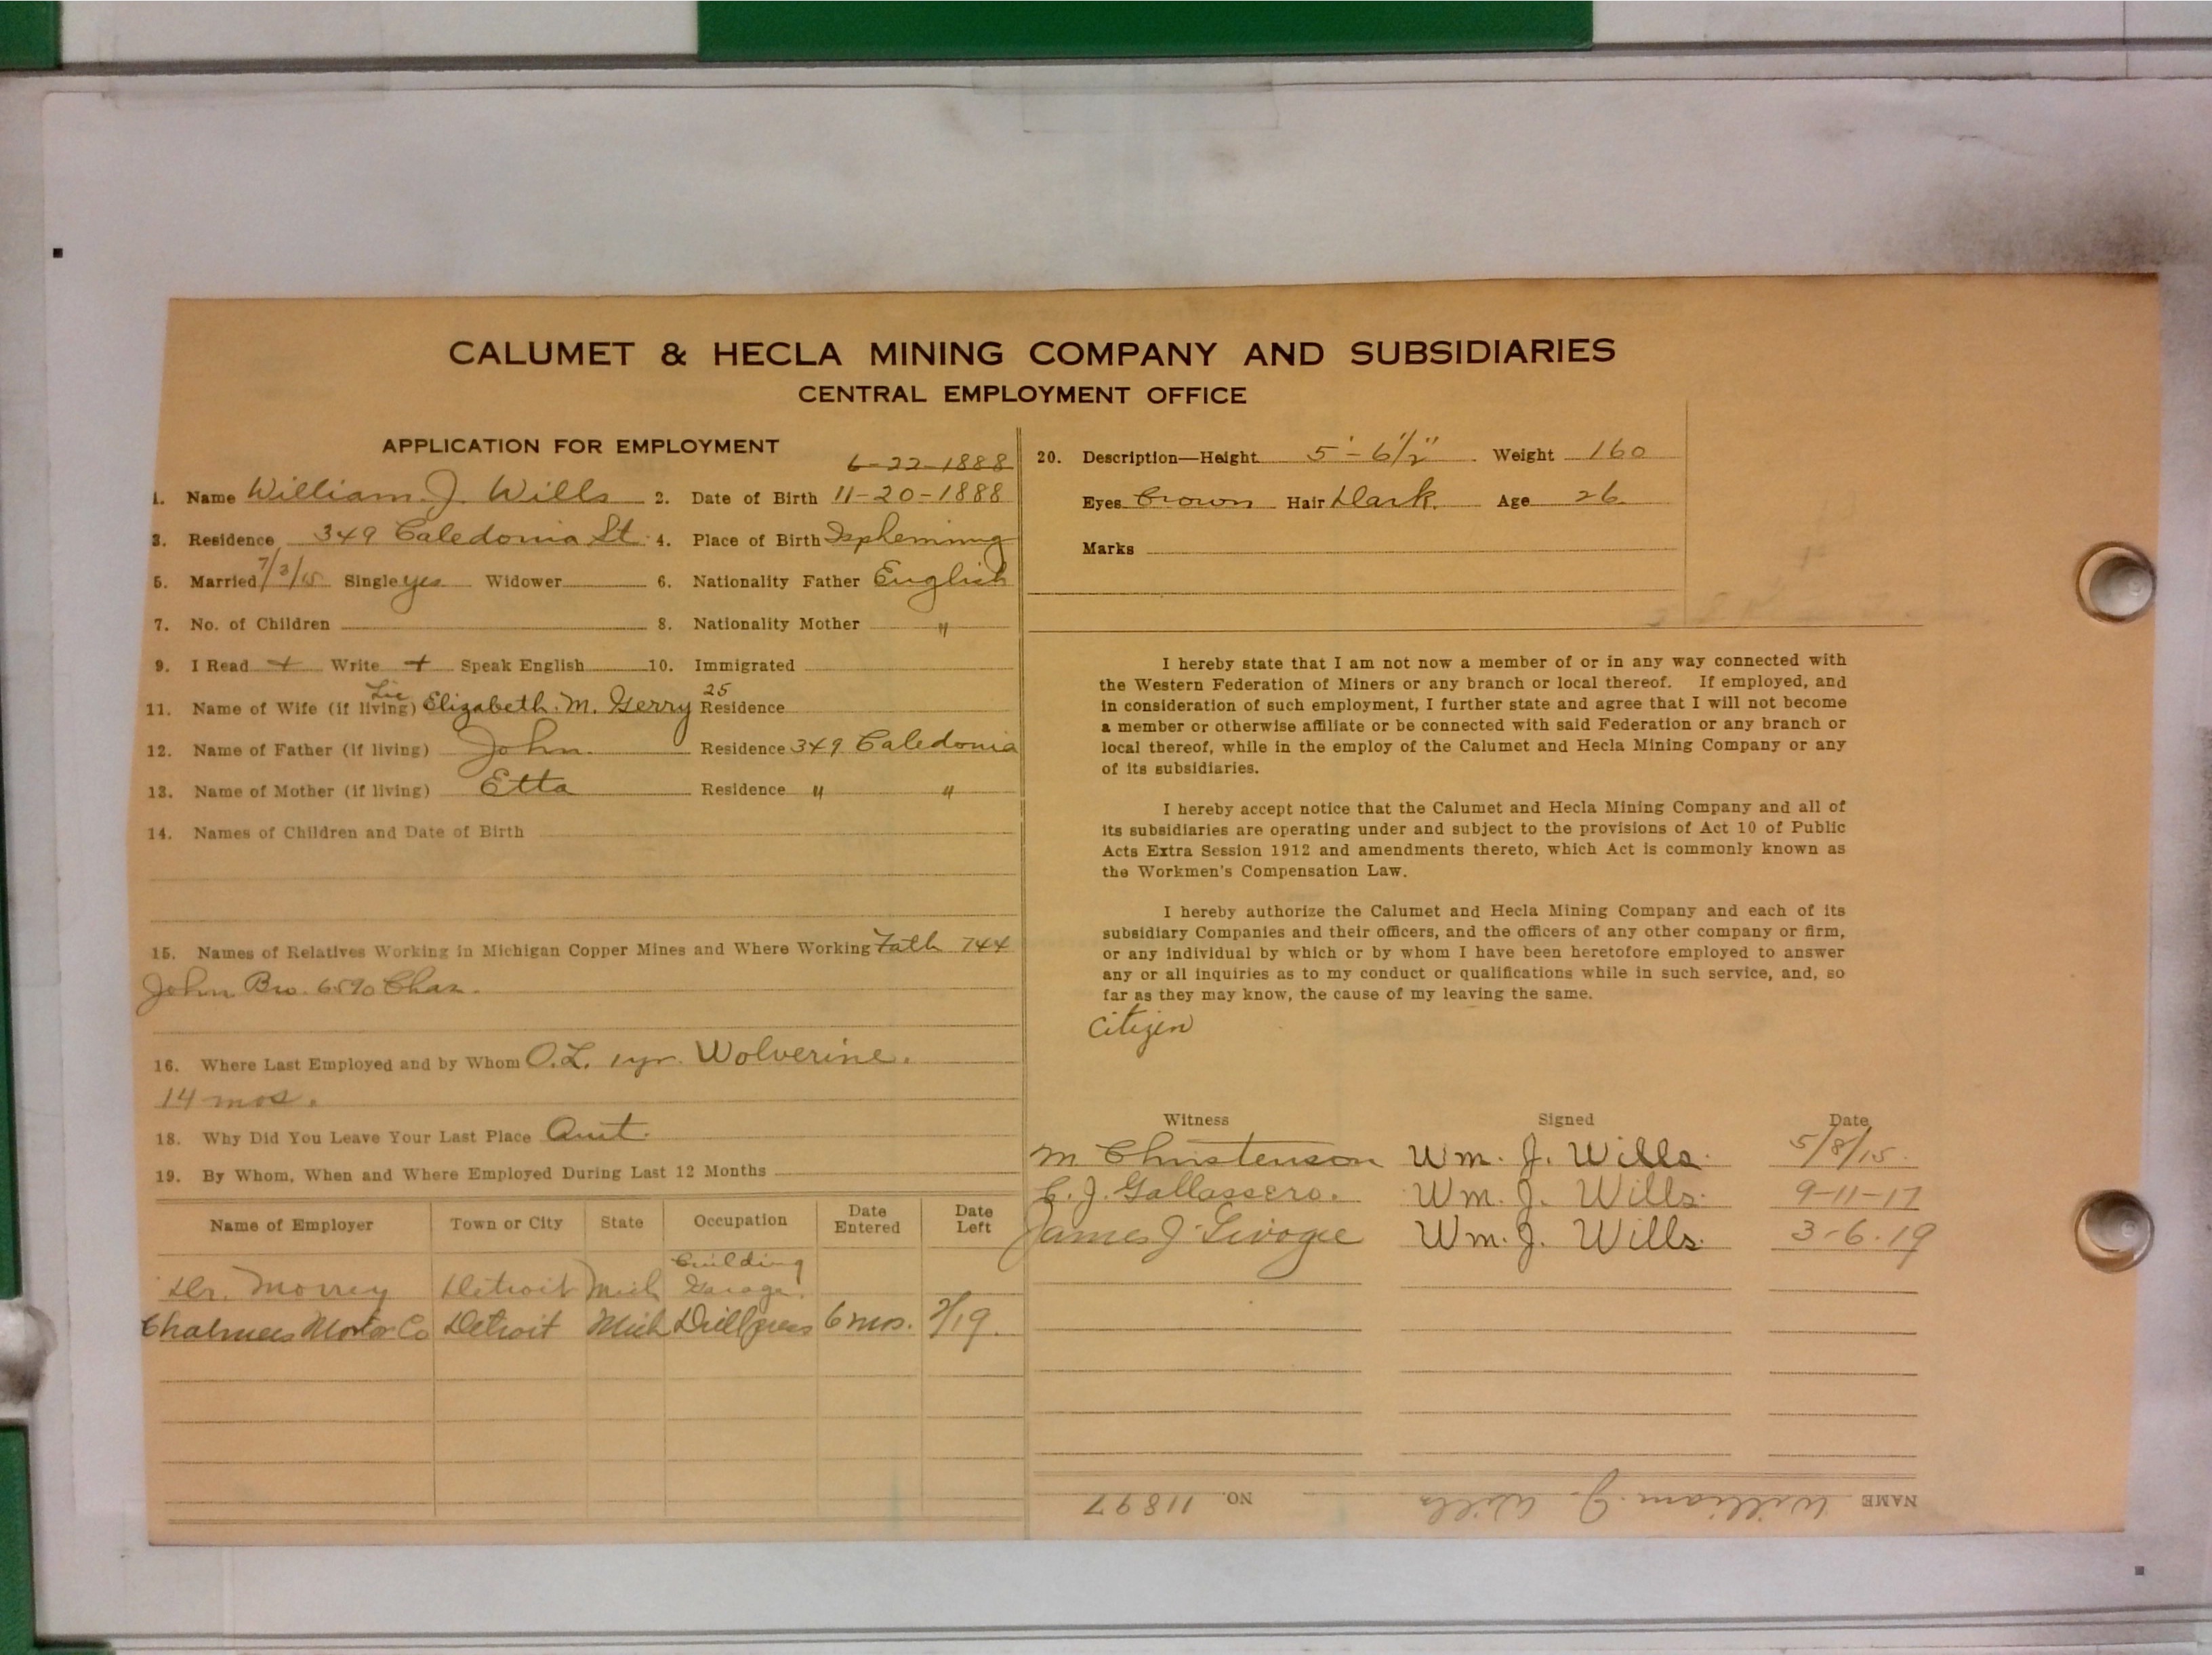 CALUMET & HECLA MINING COMPANY AND SUBSIDIARIES
CENTRAL EMPLOYMENT OFFICE
APPLICATION FOR EMPLOYMENT
6-22-1888
1. Name William J. Wills 2. Date of Birth 11-20-1888
3. Residence 349 Caledonia St. 4. Place of Birth Ispheming
5. Married 7/3/15 Single yes Widower 6. Nationality Father English
7. No. of Children 8. Nationality Mother "
9. I Read + Write + Speak English 10. Immigrated
11. Name of Wife (if living) Elizabeth. M. Gerry 25 Residence
12. Name of Father (if living) John. Residence 349 Caledonia
13. Name of Mother (if living) Etta Residence " "
14. Names of Children and Date of Birth
15. Names of Relatives Working in Michigan Copper Mines and Where Working Fath 744
John Bro. 6590 Chas.
16. Where Last Employed and by Whom O.L. 1 yr. Wolverine.
14 mos.
18. Why Did You Leave Your Last Place Quit.
19. By Whom, When and Where Employed During Last 12 Months
Name of Employer Town or City State Occupation Date Entered Date Left
Dr. Morrey Detroit Mich Building Garage.
Chalmers Motor Co Detroit Mich Drillpress 6 mos. 2/19.
20. Description—Height 5'-6 1/2" Weight 160
Eyes Brown Hair Dark. Age 26
Marks
I hereby state that I am not now a member of or in any way connected with
the Western Federation of Miners or any branch or local thereof. If employed, and
in consideration of such employment, I further state and agree that I will not become
a member or otherwise affiliate or be connected with said Federation or any branch or
local thereof, while in the employ of the Calumet and Hecla Mining Company or any
of its subsidiaries.
I hereby accept notice that the Calumet and Hecla Mining Company and all of
its subsidiaries are operating under and subject to the provisions of Act 10 of Public
Acts Extra Session 1912 and amendments thereto, which Act is commonly known as
the Workmen's Compensation Law.
I hereby authorize the Calumet and Hecla Mining Company and each of its
subsidiary Companies and their officers, and the officers of any other company or firm,
or any individual by which or by whom I have been heretofore employed to answer
any or all inquiries as to my conduct or qualifications while in such service, and, so
far as they may know, the cause of my leaving the same.
Citizen
Witness Signed Date
M Christenson Wm. J. Wills. 5/8/15.
C. J. Gallassero. Wm. J. Wills. 9-11-17
James J. Wm. J. Wills. 3-6.19
NAME William J. Wills NO. 11897